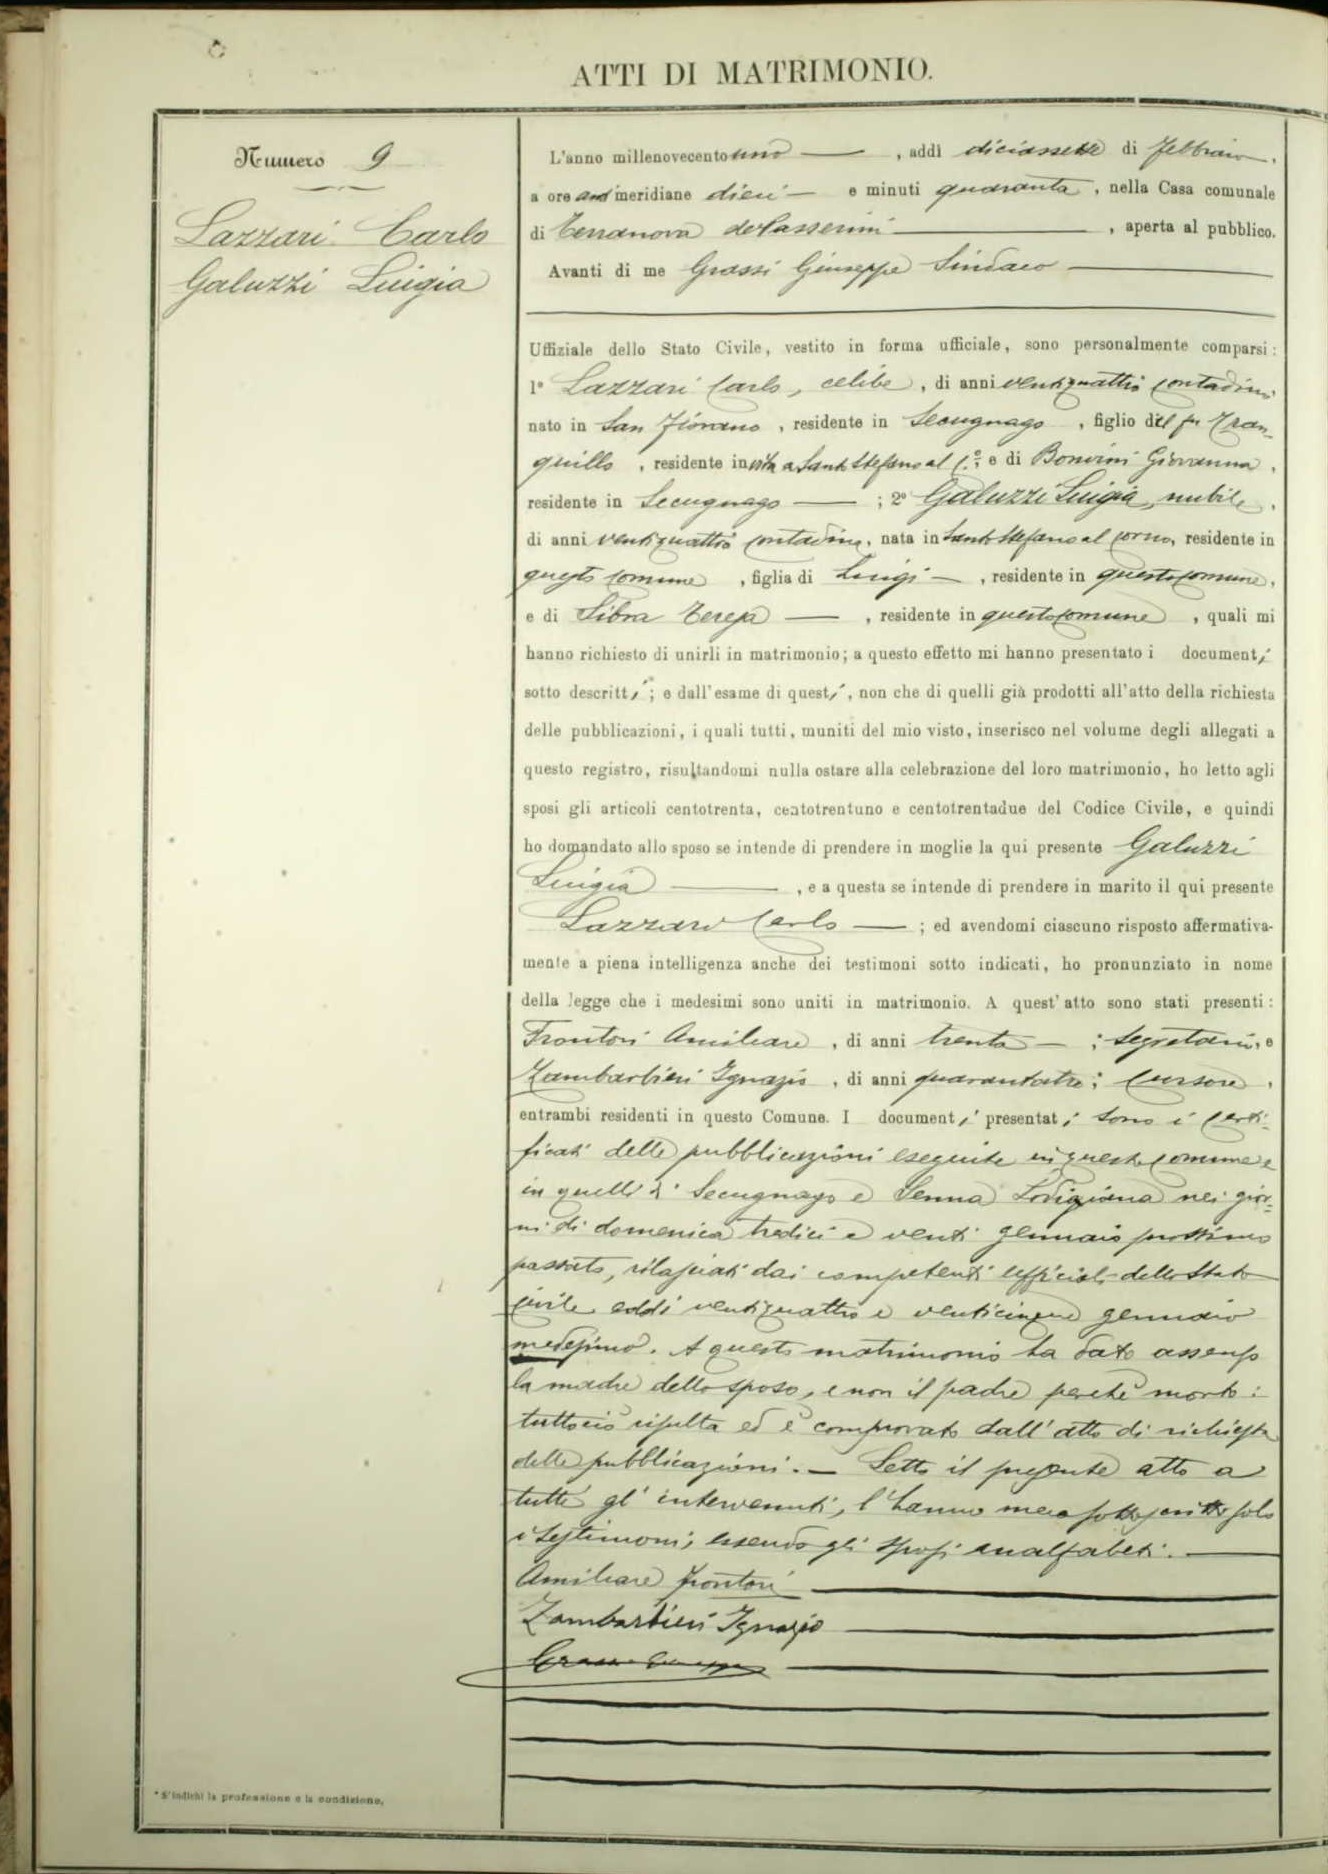 ATTI DI MATRIMONIO.
Numero 9
Lazzari Carlo
Galuzzi Luigia
L'anno millenovecento uno — , addì diciassette di febbraio ,
a ore antimeridiane dieci — e minuti quaranta , nella Casa comunale
di Terranova de Passerini — , aperta al pubblico.
Avanti di me Grassi Giuseppe Sindaco —
Uffiziale dello Stato Civile, vestito in forma ufficiale, sono personalmente comparsi:
1° Lazzari Carlo, celibe , di anni ventiquattro contadino
nato in San Fiorano , residente in Secugnago , figlio del fu Tran-
quillo , residente in vita a Santo Stefano al C.°; e di Bonvini Giovanna ,
residente in Secugnago — ; 2° Galuzzi Luigia, nubile ,
di anni ventiquattro contadina, nata in Santo Stefano al Corno, residente in
questo comune , figlia di Luigi — , residente in questo comune ,
e di Libra Teresa — , residente in questo comune , quali mi
hanno richiesto di unirli in matrimonio; a questo effetto mi hanno presentato i documenti
sotto descritti; e dall'esame di questi, non che di quelli già prodotti all'atto della richiesta
delle pubblicazioni, i quali tutti, muniti del mio visto, inserisco nel volume degli allegati a
questo registro, risultandomi nulla ostare alla celebrazione del loro matrimonio, ho letto agli
sposi gli articoli centotrenta, centotrentuno e centotrentadue del Codice Civile, e quindi
ho domandato allo sposo se intende di prendere in moglie la qui presente Galuzzi
Luigia — , e a questa se intende di prendere in marito il qui presente
Lazzari Carlo — ; ed avendomi ciascuno risposto affermativa-
mente a piena intelligenza anche dei testimoni sotto indicati, ho pronunziato in nome
della legge che i medesimi sono uniti in matrimonio. A quest'atto sono stati presenti:
Frontori Amilcare , di anni trenta — ; segretario, e
Zambarbieri Ignazio , di anni quarantatre; cursore ,
entrambi residenti in questo Comune. I documenti presentati sono i certi-
ficati delle pubblicazioni eseguite in questo comune e
in quelli di Secugnago e Senna Lodigiana nei gior-
ni di domenica tredici e venti gennaio prossimo
passato, rilasciati dai competenti ufficiali dello Stato
civile addì ventiquattro e venticinque gennaio
medesimo. A questo matrimonio ha dato assenso
la madre dello sposo, e non il padre perchè morto:
tuttociò risulta ed è comprovato dall'atto di richiesta
delle pubblicazioni. — Letto il presente atto a
tutti gl'intervenuti, l'hanno meco sottoscritto solo
i testimoni; essendo gli sposi analfabeti. —
Amilcare Frontori
Zambarbieri Ignazio
Grassi Giuseppe
* S'indichi la professione e la condizione.